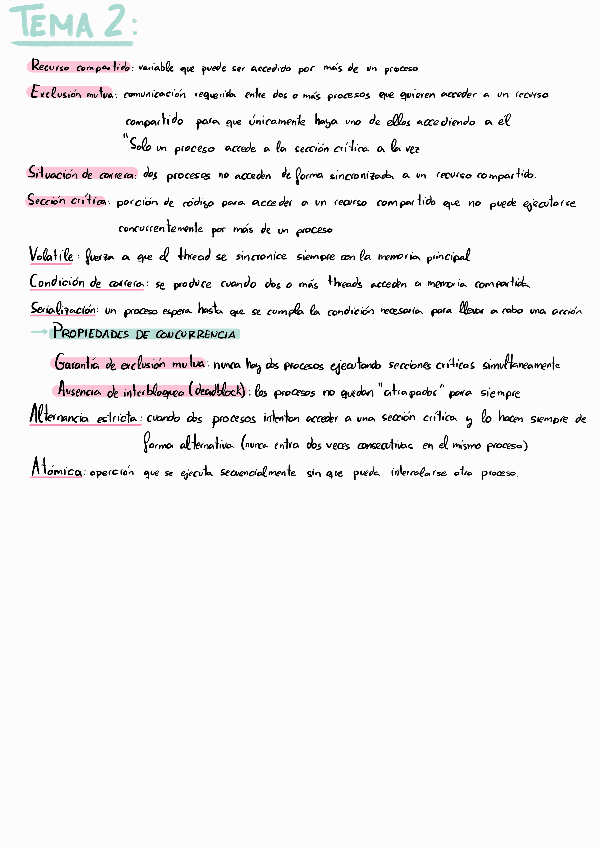 TEMA 2:
Recurso compartido: variable que puede ser accedido por más de un proceso
Exclusión mutua: comunicación requerida entre dos o más procesos que quieren acceder a un recurso
compartido para que únicamente haya uno de ellos accediendo a el
"Solo un proceso accede a la sección crítica a la vez
Situación de carrera: dos procesos no acceden de forma sincronizada a un recurso compartido.
Sección crítica: porción de código para acceder a un recurso compartido que no puede ejecutarse
concurrentemente por más de un proceso
Volatile: fuerza a que el thread se sincronice siempre con la memoria principal
Condición de carrera: se produce cuando dos o más threads acceden a memoria compartida
Serialización: un proceso espera hasta que se cumpla la condición necesaria para llevar a cabo una acción
→ PROPIEDADES DE CONCURRENCIA
Garantía de exclusión mutua: nunca hay dos procesos ejecutando secciones críticas simultaneamente
Ausencia de interbloqueo (deadblock): los procesos no quedan "atrapados" para siempre
Alternancia estricta: cuando dos procesos intentan acceder a una sección crítica y lo hacen siempre de
forma alternativa (nunca entra dos veces consecutivas en el mismo proceso)
Atómica: operción que se ejecuta secuencialmente sin que pueda intercalarse otro proceso.